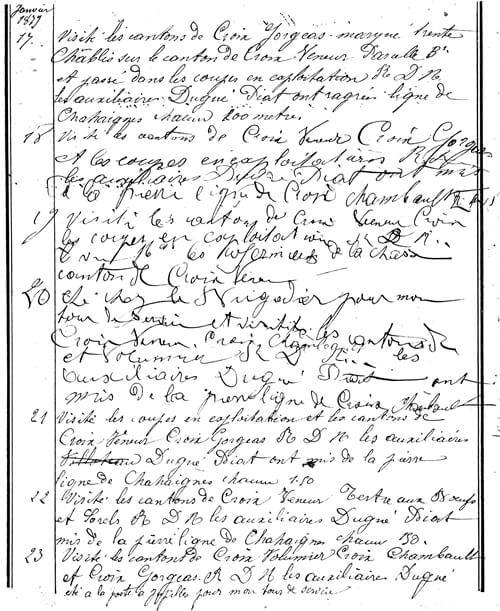 janvier
1879
17 Visité les cantons de Croix Gorgeas marqué trente
Châblis sur le canton de Croix Veneur Parcelle B
et passé dans les coupes en exploitation R D N
les auxiliaires Dugué Diat ont ragréé ligne de
Chahaignes chacun 200 metres
18 Visité les cantons de Croix Veneur Croix Gorgeas
et les coupes en exploitations R D N
les auxiliaires Dugué Diat ont mis
de la pierre ligne de Croix Chambault
19 Visité les cantons de Croix Veneur Croix
les coupes en exploitation R D N.
de la chasse
canton de Croix Veneur
20 été chez le Brigadier pour mon
tour de service et visité les cantons de
Croix Veneur, Croix Chambault
et Volumier R D N. les
auxiliaires Dugué Diat ont
mis de la pierre ligne de Croix Chambault
21 Visité les coupes en exploitation et les cantons de
Croix Veneur Croix Gorgeas R D N les auxiliaires
Dugué Diat ont mis de la pierre
ligne de Chahaignes chacun 1.50
22 Visité les cantons de Croix Veneur Tertre aux
et Sorels R D N les auxiliaires Dugué Diat
mis de la pierre ligne de Chahaignes chacun 50.
23 Visité les cantons de Croix Volumier Croix Chambault
et Croix Gorgeas. R D N les auxiliaires Dugué
été a la poste a pour mon tour de service